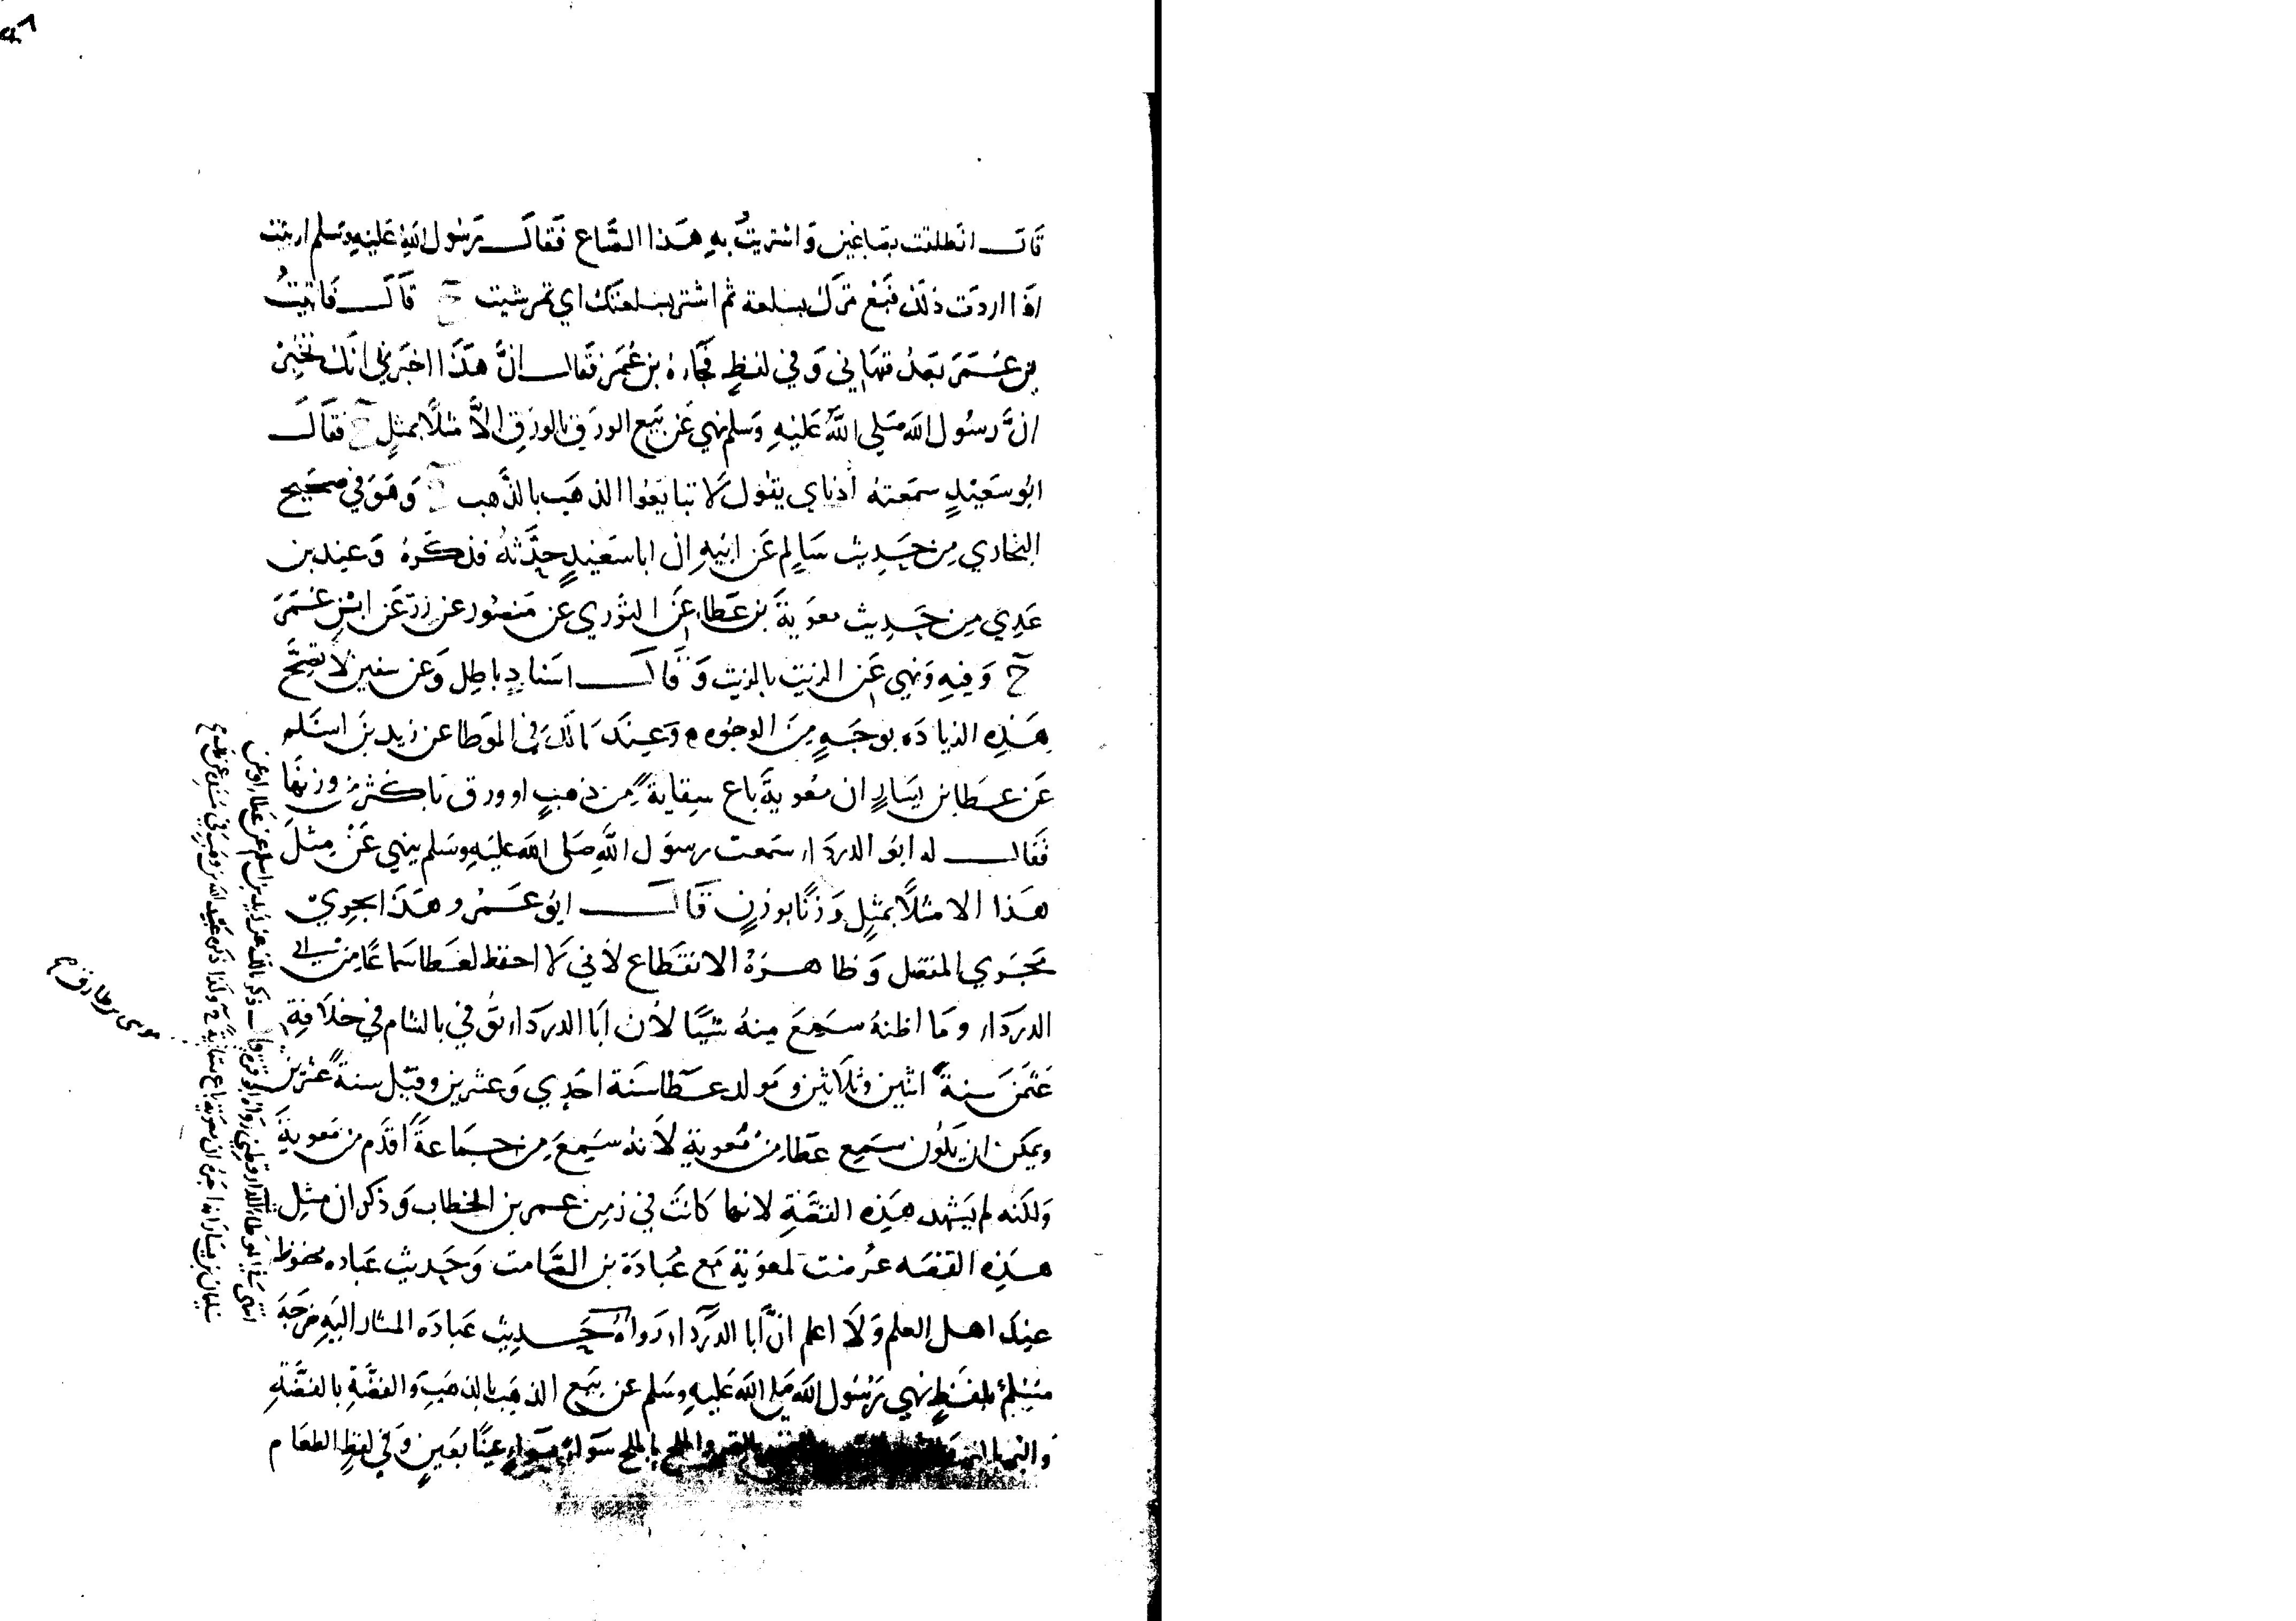 قال انطلقت بصاعين واشتريت به هذا الصاع فقال رسول الله عليه وسلم اربيت
اذا اردت ذلك فبع تمرك بسلعة ثم اشتر بسلعتك اي تمر شيت ح قال فاتيت
بن عمر بعد فنهاني وفي لفظ فجاءه بن عمر فقال ان هذا اخبرني انك تخبر
ان رسول الله صلي الله عليه وسلم نهي عن بيع الورق بالورق الا مثلا بمثل ح فقال
ابو سعيد سمعته اذناي يقول لا تبايعوا الذهب بالذهب ح وهو في صحيح
البخاري من حديث سالم عن ابيه ان ابا سعيد حدثه فذكره وعند بن
عدي من حديث معوية بن عطاء عن الثوري عن منصور عن زر عن ابن عمر
ح وفيه ونهي عن الزيت بالزيت وقال اسناد باطل وعن سفين لا تصح
هذه الزياده بوجه من الوجوه وعند مالك في الموطا عن زيد بن اسلم
عن عطا بن يسار ان معوية باع سقاية من ذهب او ورق باكثر من وزنها
فقال له ابو الدرداء سمعت رسول الله صلى الله عليه وسلم ينهي عن مثل
هذا الا مثلا بمثل وزنا بوزن قال ابو عمر وهذا يجري
مجري المتصل وظاهره الانقطاع لاني لا احفظ لعطا سماعا من ابي
الدرداء وما اظنه سمع منه شيا لان ابا الدرداء توفي بالشام في خلافة
عثمن سنة اثنين وثلاثين ومولد عطا سنة احدي وعشرين وقيل سنة عشرين
ويمكن ان يكون سمع عطا من معوية لانه سمع من جماعة اقدم من معوية
ولكنه لم يشهد هذه القصة لانها كانت في زمن عمر بن الخطاب وذكر ان مثل
هذه القصه عرضت لمعوية مع عبادة بن الصامت وحديث عباده محفوظ
عند اهل العلم ولا اعلم ان ابا الدرداء رواه حديث عباده المشار اليه خرجه
مسلم بلفظ نهي رسول الله صلي الله عليه وسلم عن بيع الذهب بالذهب والفضة بالفضة
والبر بالبر والملح بالملح سواء بسواء عينا بعين وفي لفظ الطعام
انتهى الموطا الدارقطني رواه ابو قرة ذكر مالك عن زيد بن اسلم عن عطاء او عن
سليمان بن يسار انه اخبره ان معوية باع سقاية ح وكذا ذكره عبد الله بن وهب في مسنده
موسى بن طارق